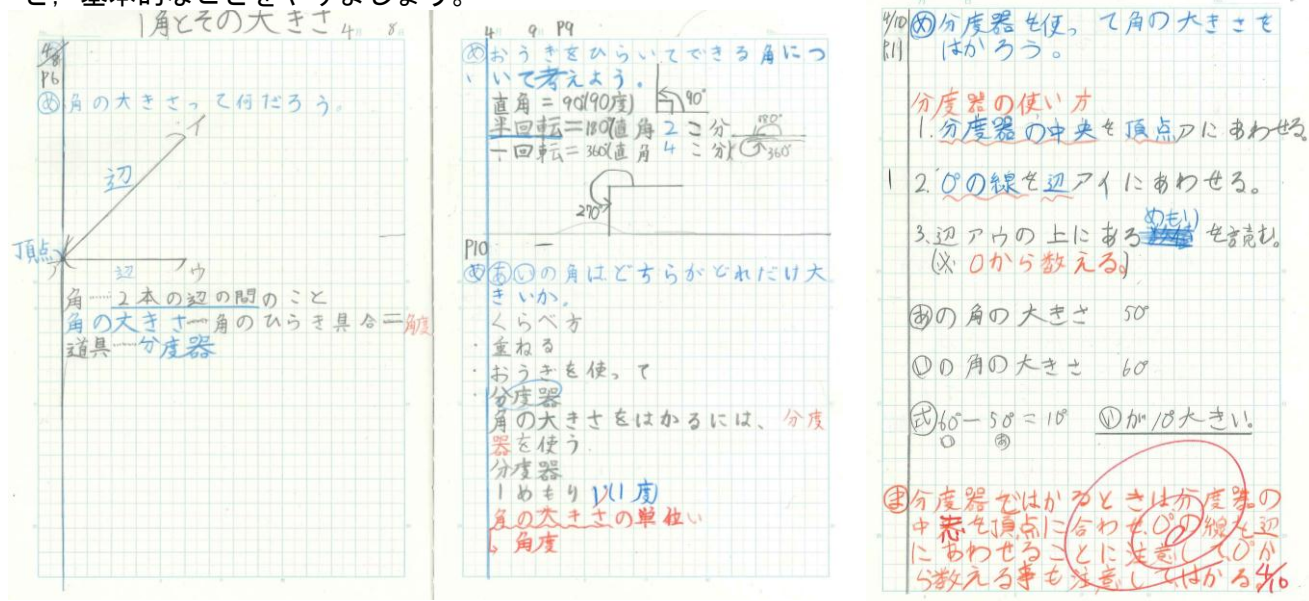 と，基本的なことをやりましょう。
1角とその大きさ 4 8
4/8
P6
め 角の大きさって何だろう。
イ
辺
頂点
ア 辺 ウ
角……2本の辺の間のこと
角の大きさ…角のひらき具合＝角度
道具…分度器
4 9 P9
め おうぎをひらいてできる角につ
いて考えよう。
直角＝90°(90度) 90°
半回転＝180°(直角2こ分) 180°
一回転＝360°(直角4こ分) 360°
270°
P10
め あいの角はどちらがどれだけ大
きいか。
くらべ方
・重ねる
・おうぎを使って
・分度器
角の大きさをはかるには、分度
器を使う
分度器
1めもり 1°(1度)
角の大きさの単位い
角度
4/10
P11
め 分度器を使って角の大きさを
はかろう。
分度器の使い方
1.分度器の中央を頂点アにあわせる。
2.0°の線を辺アイにあわせる。
めもり
3.辺アウの上にある を読む。
(※0から数える。)
あの角の大きさ 50°
いの角の大きさ 60°
式 60°－50°＝10° いが10°大きい。
い あ
ま 分度器ではかるときは分度器の
中心を頂点に合わせ、0°の線を辺
にあわせることに注意して、0°か
ら数える事も注意してはかる。4/10